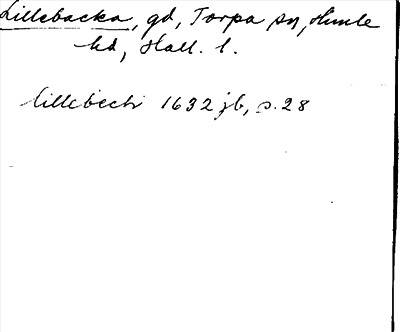 Lillebacka, gd, Torpa sn, Himle
hd, Hall. l.
lillebech 1632 jb, s. 28